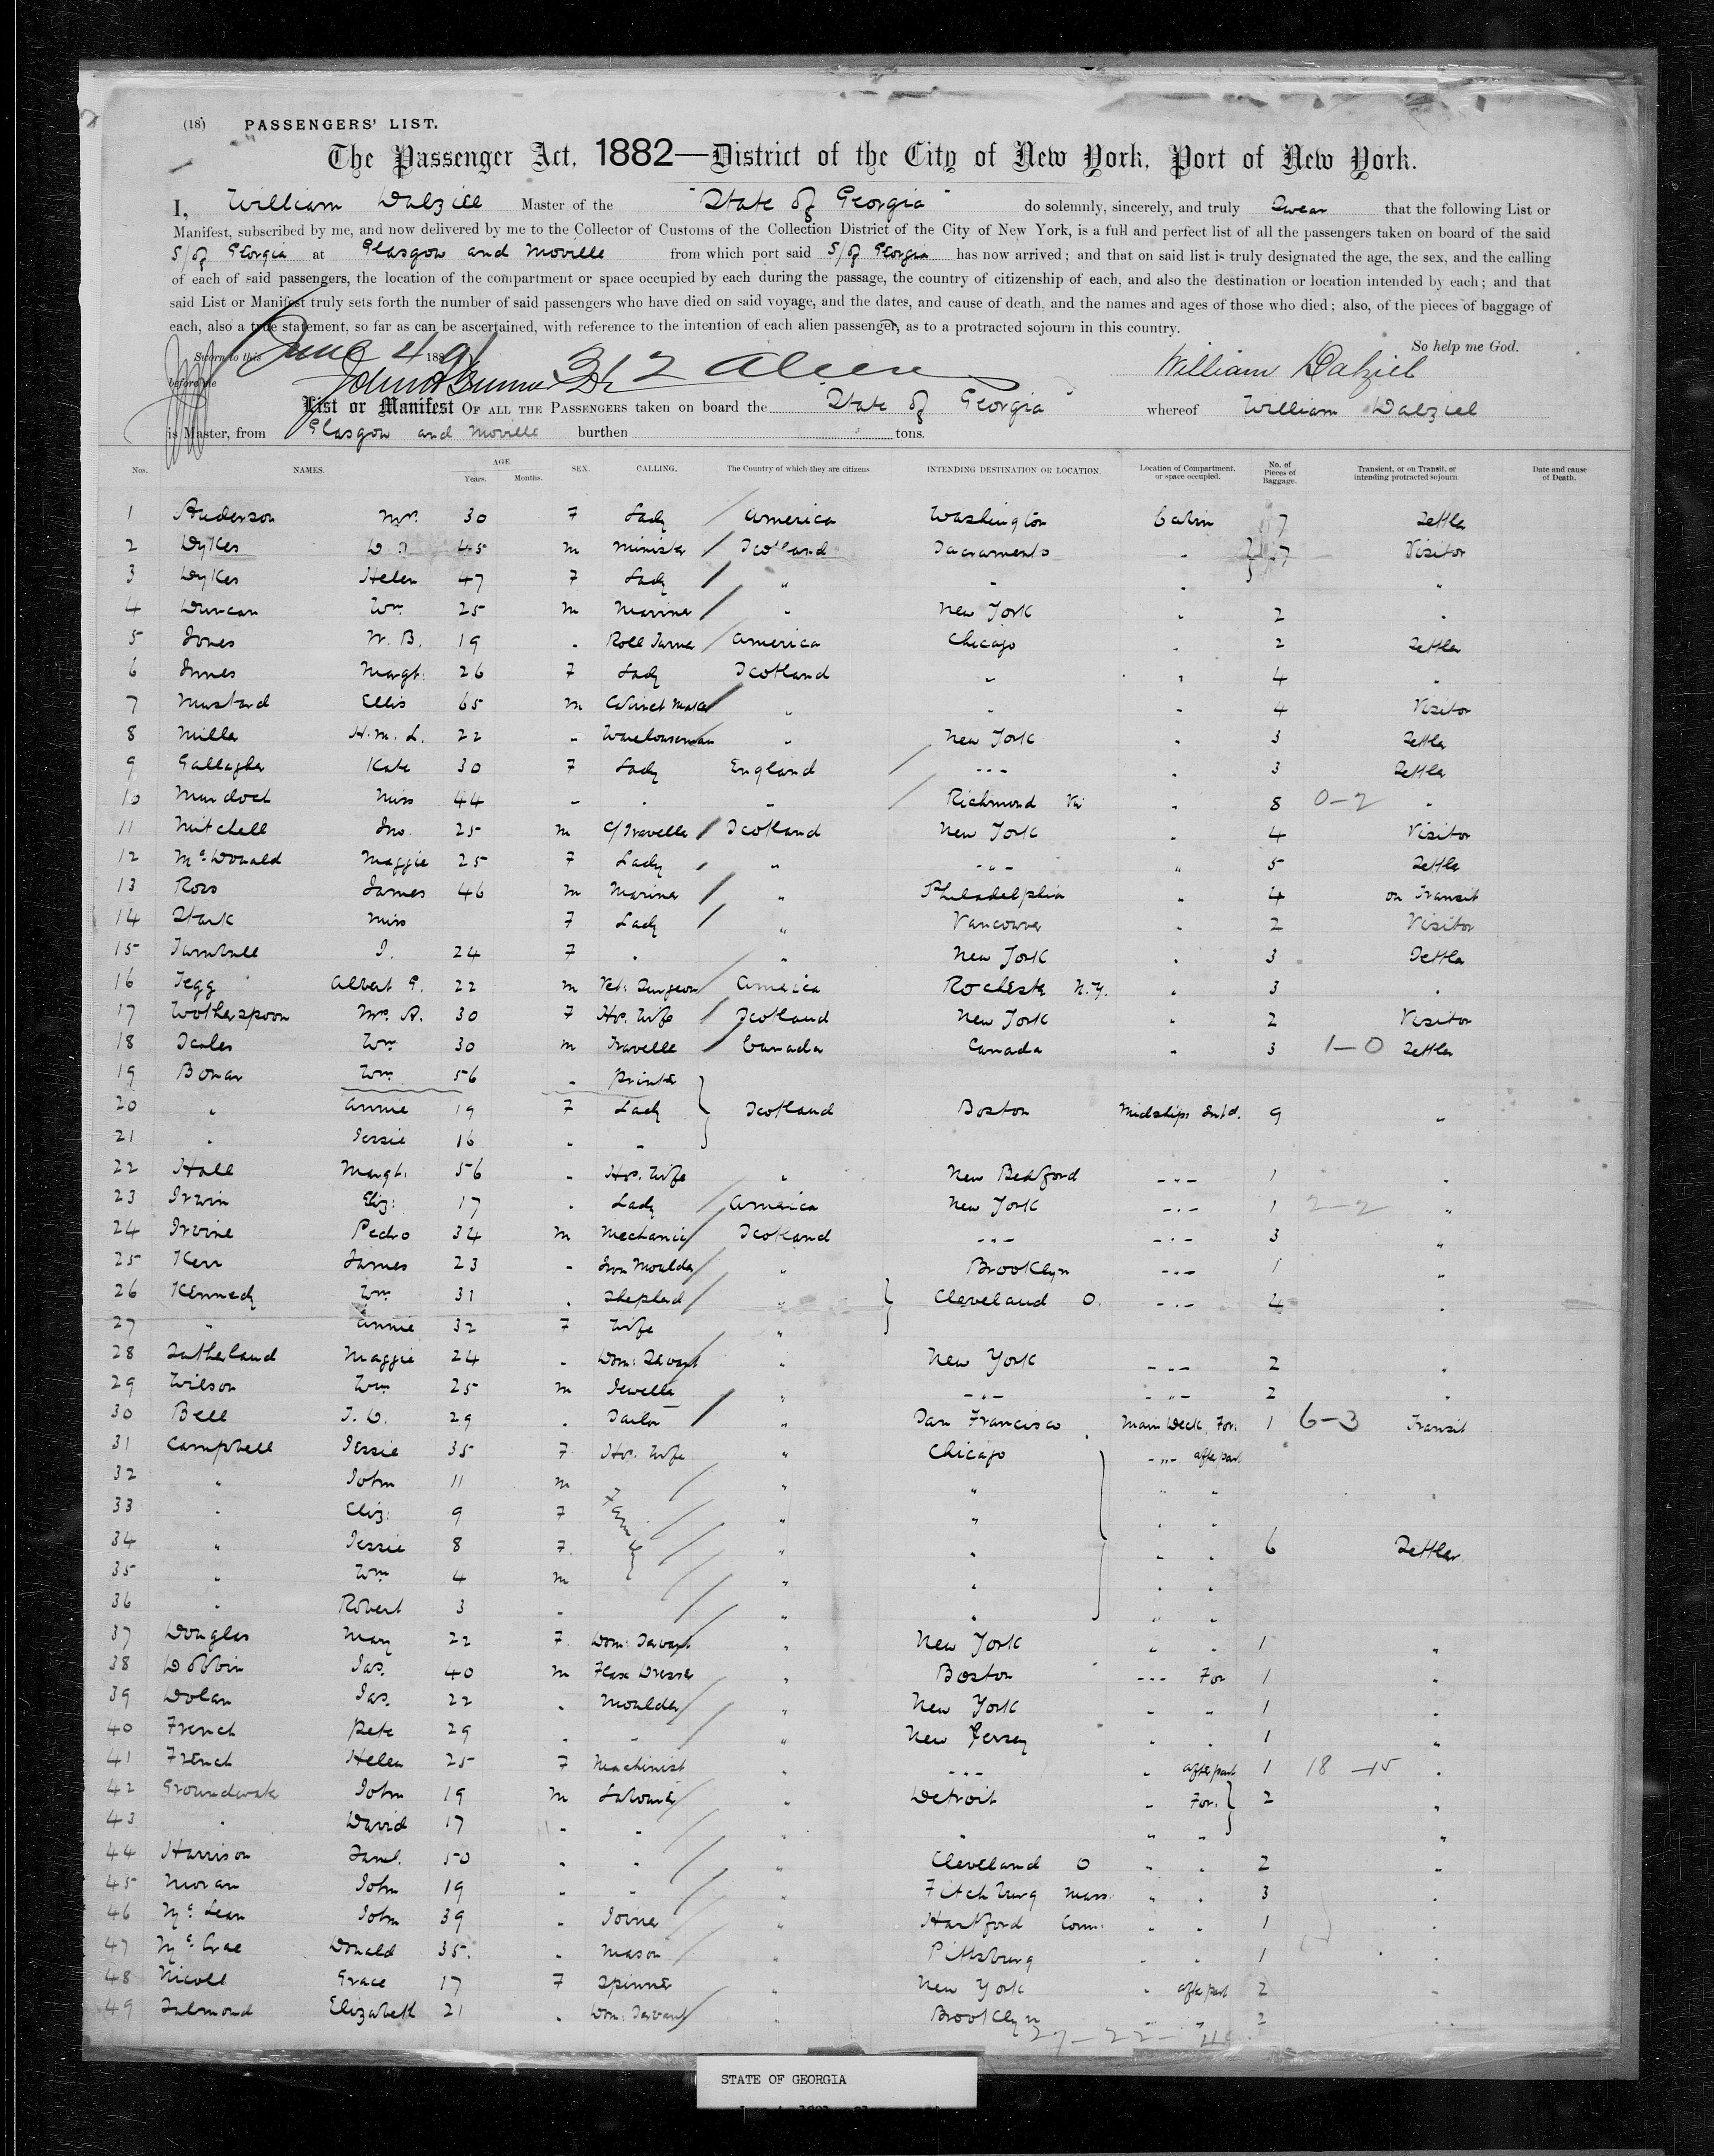 (18) PASSENGERS' LIST.
The Passenger Act, 1882—District of the City of New York, Port of New York.
I, William Dalziel Master of the "State of Georgia" do solemnly, sincerely, and truly Swear that the following List or
Manifest, subscribed by me, and now delivered by me to the Collector of Customs of the Collection District of the City of New York, is a full and perfect list of all the passengers taken on board of the said
S/of Georgia at Glasgow and Moville from which port said S/of Georgia has now arrived; and that on said list is truly designated the age, the sex, and the calling
of each of said passengers, the location of the compartment or space occupied by each during the passage, the country of citizenship of each, and also the destination or location intended by each; and that
said List or Manifest truly sets forth the number of said passengers who have died on said voyage, and the dates, and cause of death, and the names and ages of those who died; also, of the pieces of baggage of
each, also a true statement, so far as can be ascertained, with reference to the intention of each alien passenger, as to a protracted sojourn in this country.
So help me God.
Sworn to this June 4 1891
before me 312 Alien William Dalziel
List or Manifest OF ALL THE PASSENGERS taken on board the "State of Georgia" whereof William Dalziel
is Master, from Glasgow and Moville burthen tons.
Nos. NAMES. AGE Years. Months. SEX. CALLING. The Country of which they are citizens. INTENDING DESTINATION OR LOCATION. Location of Compartment, or space occupied. No. of Pieces of Baggage. Transient, or on Transit, or intending protracted sojourn. Date and cause of Death.
1 Anderson Mrs. 30 F Lady America Washington Cabin 7 Settler
2 Dykes 45 M Minister Scotland Sacramento " 7 Visitor
3 Dykes Helen 47 F Lady " " " "
4 Duncan Wm. 25 M Mariner " New York " 2 "
5 Jones W. B. 19 " Roll Turner America Chicago " 2 Settler
6 Innes Margt. 26 F Lady Scotland " " 4 "
7 Mustard Ellis 65 M Cabinet Maker " " " 4 Visitor
8 Miller H. M. L. 22 " Warehouseman " New York " 3 Settler
9 Gallagher Kate 30 F Lady England " " 3 Settler
10 Murdoch Miss 44 " " " Richmond Va " 8 0-2 "
11 Mitchell Jno. 25 M C/Traveller Scotland New York " 4 Visitor
12 McDonald Maggie 25 F Lady " " " 5 Settler
13 Ross James 46 M Mariner " Philadelphia " 4 on Transit
14 Stark Miss F Lady " Vancouver " 2 Visitor
15 Turnbull J. 24 F " " New York " 3 Settler
16 Tegg Albert G. 22 M Vet. Surgeon America Rochester N.Y. " 3 "
17 Wotherspoon Mrs. A. 30 F Hs. Wife Scotland New York " 2 Visitor
18 Scales Wm 30 M Traveller Canada Canada " 3 1-0 Settler
19 Bonar Wm 56 " Printer
20 " Annie 19 F Lady Scotland Boston Midships Intd. 9 "
21 " Jessie 16 " "
22 Hall Margt. 56 " Hs. Wife " New Bedford " 1 "
23 Irwin Eliz: 17 " Lady America New York " 1 2-2 "
24 Irvine Pedro 34 M Mechanic Scotland " " 3 "
25 Kerr James 23 " Iron Moulder " Brooklyn " 1 "
26 Kennedy Wm 31 " Shepherd " Cleveland O. " 4 "
27 " Annie 32 F Wife "
28 Sutherland Maggie 24 " Dom: Servant " New York " 2 "
29 Wilson Wm 25 M Jeweller " " " 2 "
30 Bell 29 " Tailor " San Francisco Main Deck For. 1 6-3 Transit
31 Campbell Jessie 35 F Hs. Wife " Chicago " after part
32 " John 11 M " " " "
33 " Eliz: 9 F Family " " " "
34 " Jessie 8 F " " " " 6 Settler
35 " Wm 4 M " " " "
36 " Robert 3 " " " " "
37 Douglas Mary 22 F Dom: Servant " New York " " 1 "
38 Dobbin Jas. 40 M Flax Dresser " Boston " For 1 "
39 Dolan Jas. 22 " Moulder " New York " " 1 "
40 French Peter 29 " " " New Jersey " " 1 "
41 French Helen 25 F Machinist " " " after part 1 18-15 "
42 Groundwater John 19 M Labourer " Detroit " For. 2 "
43 " David 17 " " " " " " "
44 Harrison Saml. 50 " " " Cleveland O " " 2 "
45 Moran John 19 " " " Fitchburg Mass. " " 3 "
46 McLean John 39 " Joiner " Hartford Conn: " " 1 "
47 McCrae Donald 35. " Mason " Pittsburg " " 1 "
48 Nicoll Grace 17 F Spinner " New York " after part 2 "
49 Salmond Elizabeth 21 " Dom: Servant " Brooklyn " " 2 "
STATE OF GEORGIA